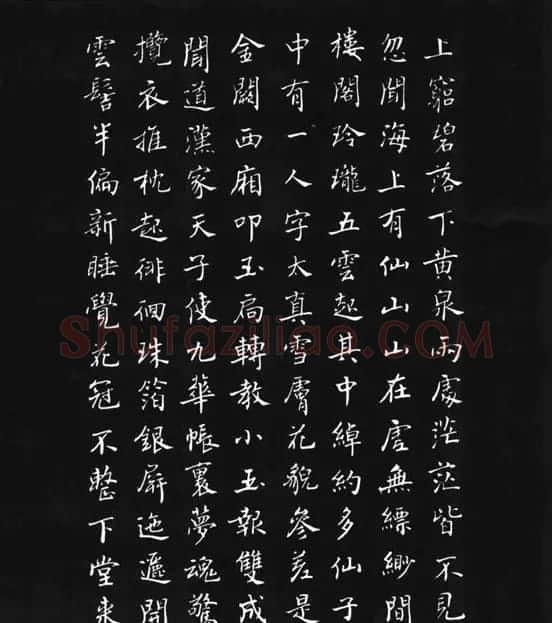 上窮碧落下黃泉兩處茫茫皆不見
忽聞海上有仙山山在虛無縹緲間
樓閣玲瓏五雲起其中綽約多仙子
中有一人字太真雪膚花貌參差是
金闕西廂叩玉扃轉教小玉報雙成
聞道漢家天子使九華帳裏夢魂驚
攬衣推枕起徘徊珠箔銀屏迤邐開
雲髻半偏新睡覺花冠不整下堂來
Shufaziliao.COM